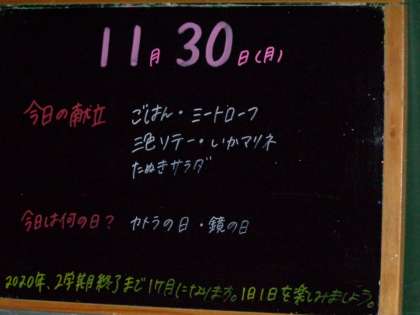 11月30日(月)
今日の献立 ごはん・ミートローフ
三色ソテー・いかマリネ
たぬきサラダ
今日は何の日? カメラの日・鏡の日
2020年、2学期終了まで17日になります。1日1日を楽しみましょう。